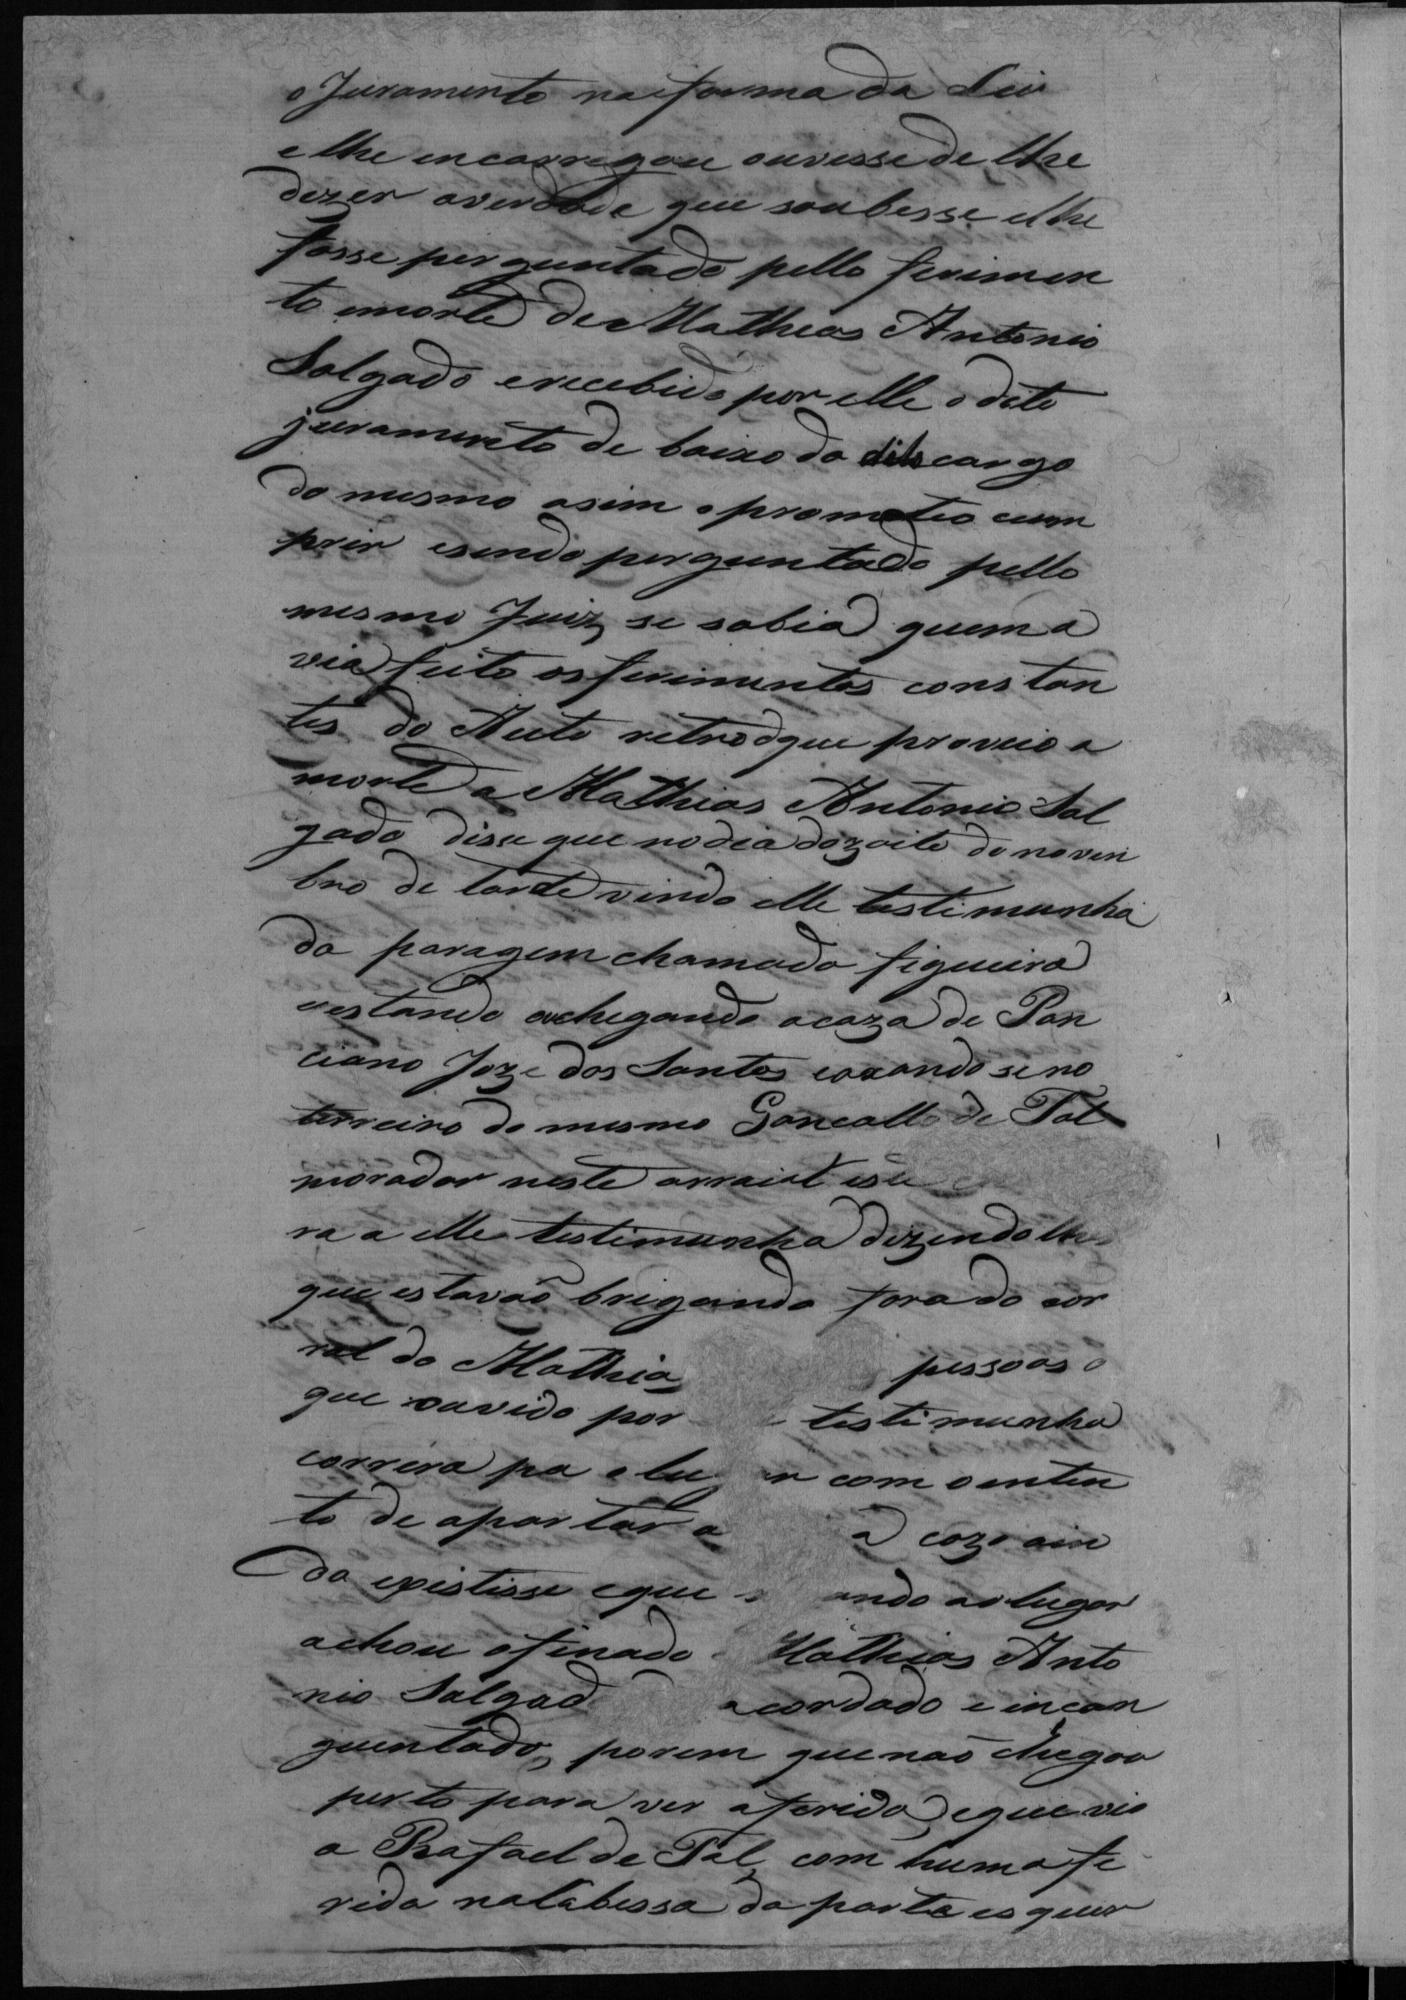 o Juramento na forma da Lei
e lhe encarregou ouvesse de lhe
dezer averdade que soubesse elhe
fosse perguntado pello ferimen
to emorte de Mathias Antonio
Salgado erecebido por elle o dito
juramento de baixo do cargo
do mesmo asim o prometeo cum
prir esendo perguntado pello
mesmo Juiz se sabia quem a
via feito os ferimentos constan
tes do Auto retro dque proveio a
morte a Mathias Antonio Sal
gado disse que nodia dozoito de novem
bro de tarde vindo elle testimunha
da paragem chamada figueira
eestando achegando acaza de Pon
ciano Joze dos Santos seno
terreiro do mesmo Goncallo de Tal
morador neste arraial
ra a elle testimunha dizendolhe
que estavaõ brigando fora do cor
ral do Mathia pessoas o
que ouvido por testimunha
correra pa olu r com ointen
to de apartar a a cozo ain
da existisse eque ando aolugar
achou ofinado Mathias Anto
nio Salgad acordado e incan
guentado, porem que naõ chegou
perto para ver aferida, eque vio
a Rafael de Tal com huma fe
rida nacabessa da parte esquer